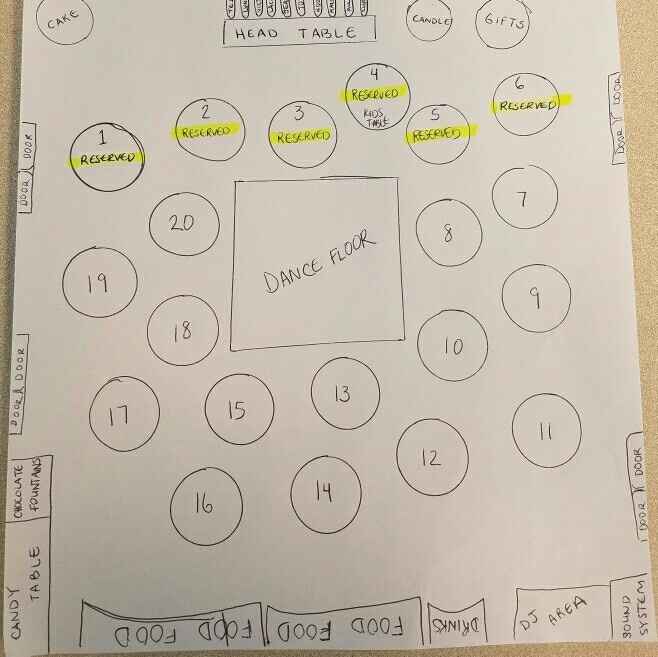 CAKE
HEAD TABLE
CANDLE
GIFTS
1
RESERVED
2
RESERVED
3
RESERVED
4
RESERVED
KIDS
TABLE
5
RESERVED
6
RESERVED
DOOR DOOR
DOOR DOOR
20
DANCE FLOOR
8
7
19
18
10
9
DOOR DOOR
17
15
13
12
11
16
14
DOOR DOOR
CHOCOLATE
FOUNTAINS
CANDY
TABLE
FOOD FOOD
FOOD FOOD
DRINKS
DJ AREA
SOUND
SYSTEM